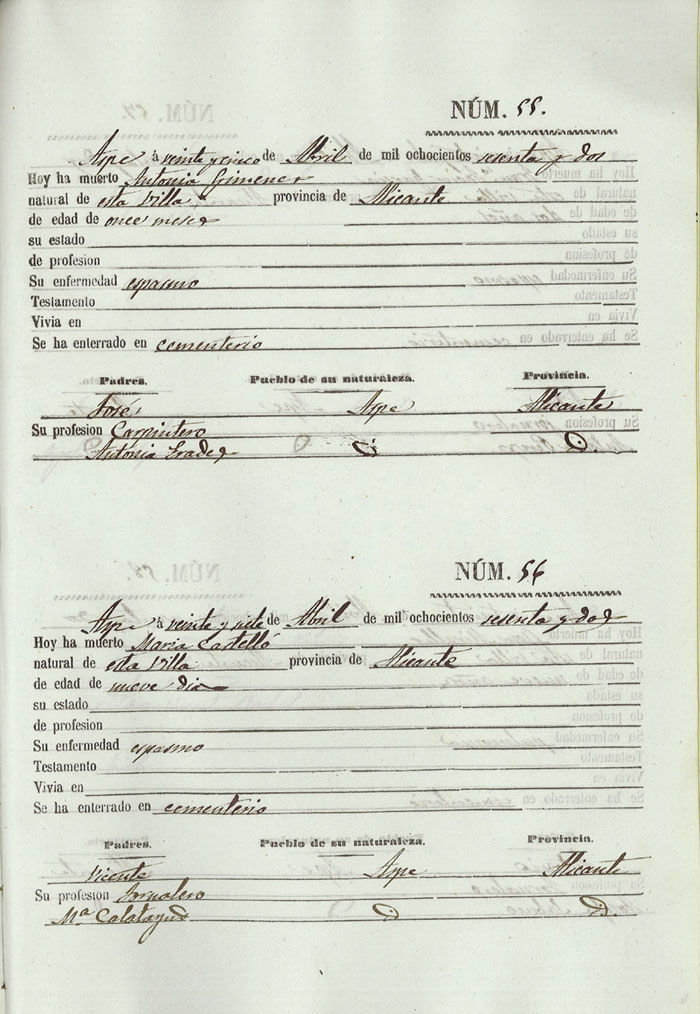 NÚM. 55.
Aspe à veinte y cinco de Abril de mil ochocientos sesenta y dos
Hoy ha muerto Antonia Gimenez
natural de esta Villa provincia de Alicante
de edad de once meses
su estado
de profesion
Su enfermedad espasmo
Testamento
Vivia en
Se ha enterrado en cementerio
Padres. Pueblo de su naturaleza. Provincia.
José Aspe Alicante
Su profesion Carpintero
Antonia D. D.
NÚM. 56
Aspe à veinte y siete de Abril de mil ochocientos sesenta y dos
Hoy ha muerto Maria Castelló
natural de esta Villa provincia de Alicante
de edad de nueve dias
su estado
de profesion
Su enfermedad espasmo
Testamento
Vivia en
Se ha enterrado en cementerio
Padres. Pueblo de su naturaleza. Provincia.
Vicente Aspe Alicante
Su profesion Jornalero
Mª Calatayud D D.